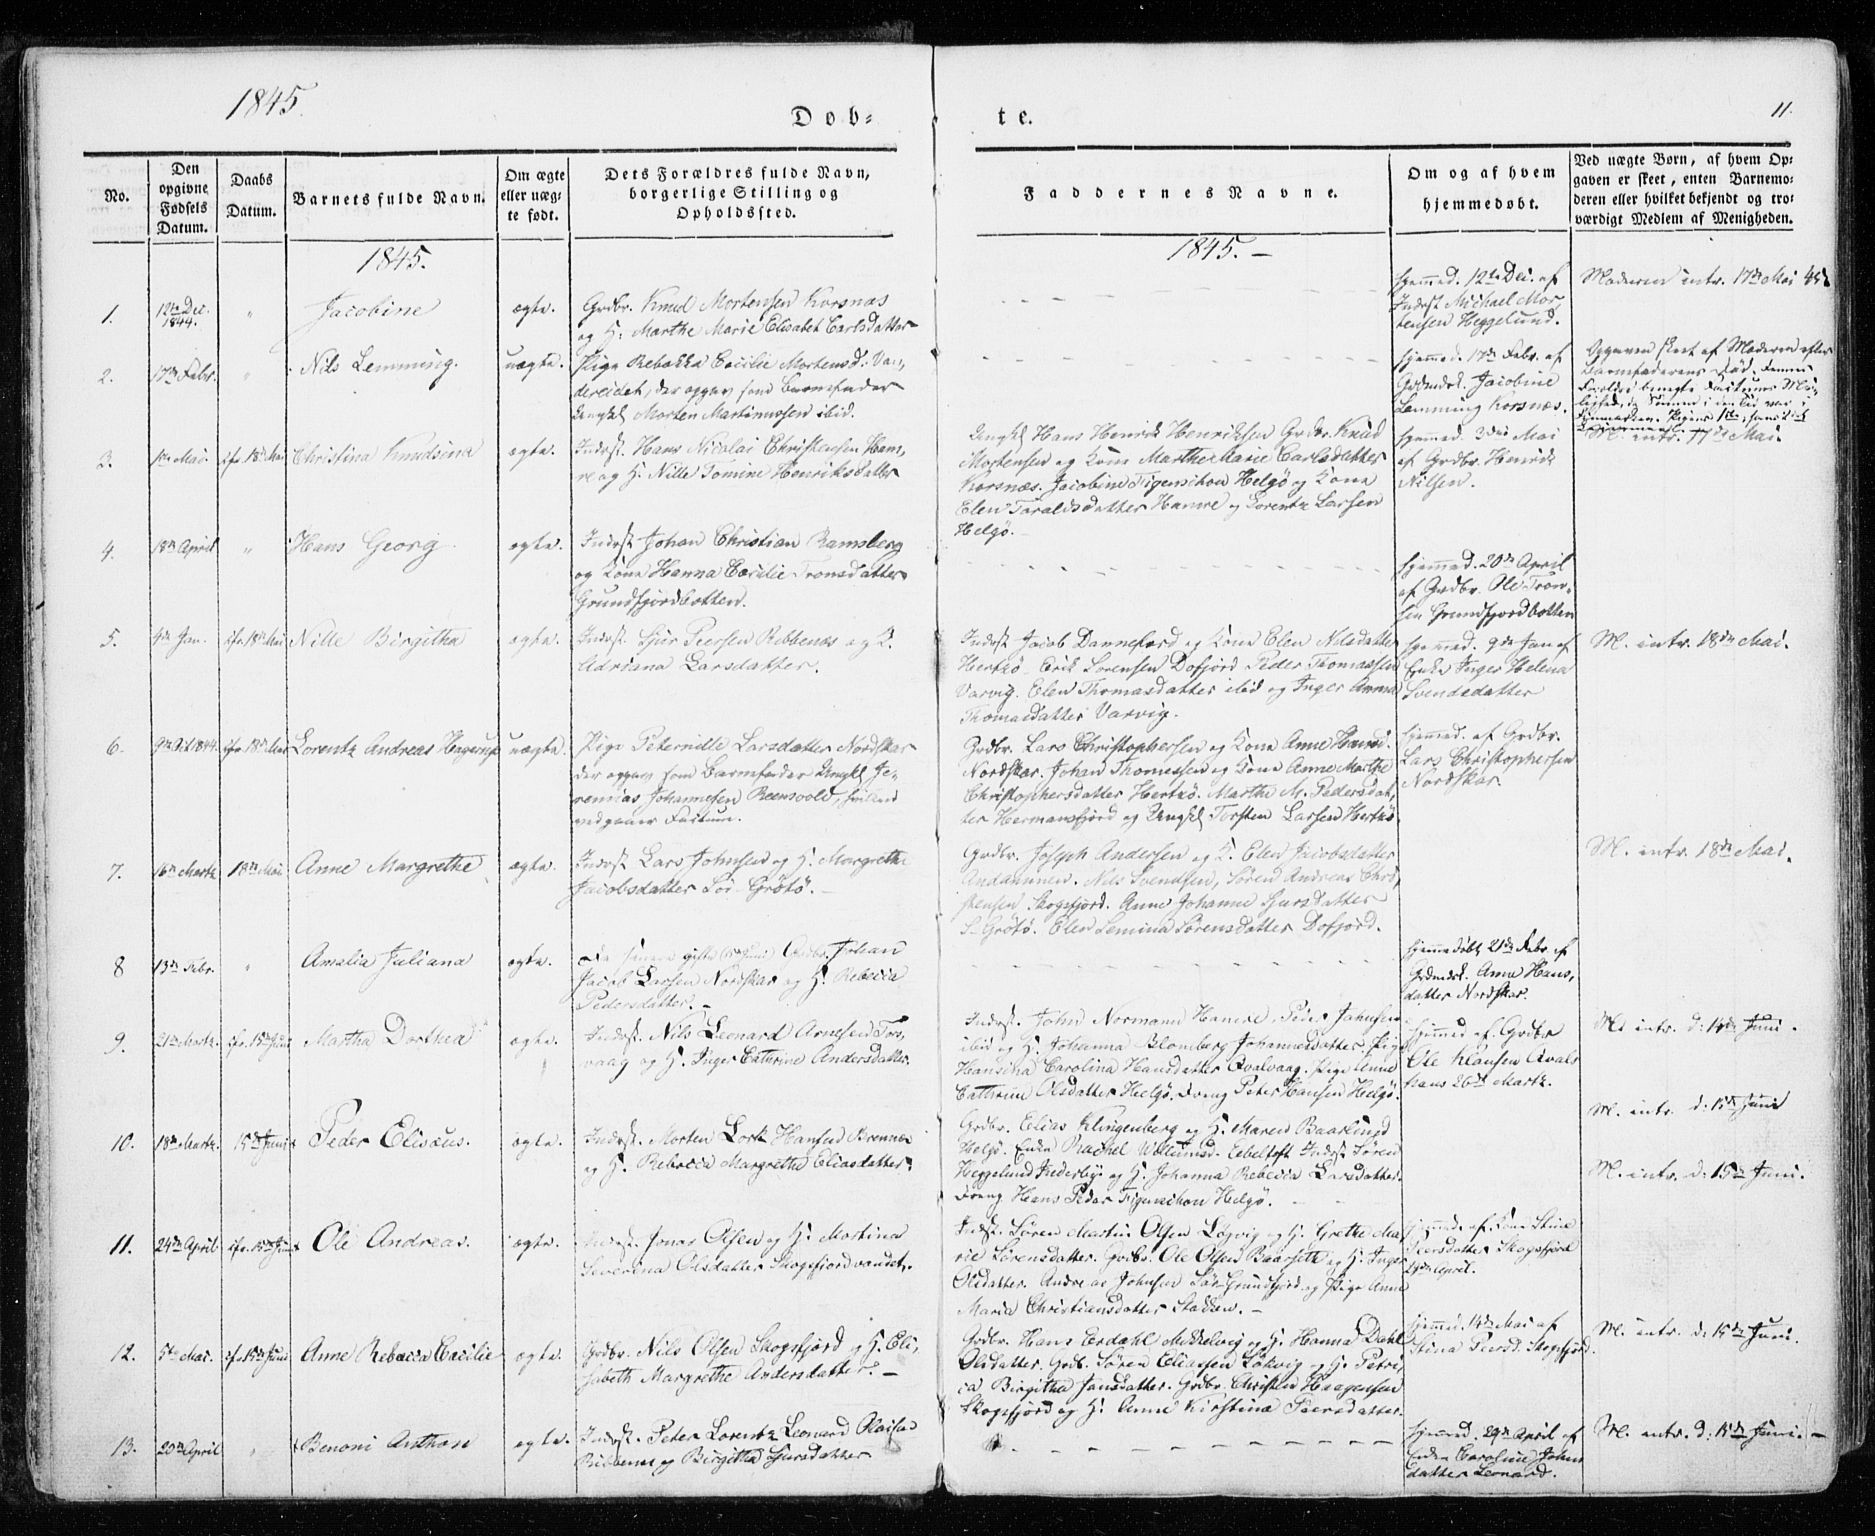 1845.
Dob-
te.
11.
No.
Den opgivne Fødsels Datum.
Daabs Datum.
Barnets fulde Navn.
Om ægte eller uægte født.
Dets Forældres fulde Navn, borgerlige Stilling og Opholdssted.
Faddernes Navne.
Om og af hvem hjemmedøbt.
Ved uægte Børn, af hvem Opgaven er skeet, enten Barnemoderen eller hvilket bekjendt og troværdigt Medlem af Menigheden.
1845.
1845. –
1.
12te Dec. 1844.
"
Jacobine
ægte.
Grdbr. Knud Mortensen Korsnæs
og H. Marthe Marie Elisabet Carlsdatter
hjemmed. 12te Dec. af
Inderst Michael Mor-
tensen Heggelund.
Moderen intr. 17de Mai 45
2.
17de Febr.
"
Nils Lemming.
uægte.
Pige Rebekka Cecilie Mortensd. Va-
dereidet, der opgav som Barnefader
Ungkl Morten Martinussen ibid.
hjemmed. 17de Febr. af
Jacobine
Lemming Korsnæs.
Opgaven skeet af Moderen efter
Barnefaderens
M. intr. 17de Mai.
3.
1ste Mai
18de Mai
Christina Knudsina
ægte.
Inderst. Hans Nicolai Christensen Ham-
re og H. Nille Tomine Henriksdatter
Ungkl Hans Henrik Henriksen Grdbr. Knud
Mortensen og Kone Marthe Marie Carlsdatter
Korsnæs. Jacobine Figenschou Helgø og Kone
Elen Taraldsdatter Hamre og Lorentz Larsen
Helgø.
hjemmed. 3die Mai
af Grdbr. Henrik
Nilsen.
4.
18de April
"
Hans Georg
ægte.
Inderst Johan Christian Ramsberg
og Kone Hanna Cecilie Tronsdatter
Grundfjordbotten.
hjemmed. 20de April
af Grdbr. Ole Tron-
sen Grundfjordbotten
5.
Jan.
18de Mai
Nille Birgitha
ægte.
Inderst. Sjur Peersen Rebbenes og K.
Adriana Larsdatter.
Inderst Jacob Dannefærd og Kone Elen Nilsdatter
Hertsø. Erik Sørensen Dofjord Peder Thomassen
Varvig. Elen Thomasdatter ibid og Inger Anna
Thomasdatter Varvig.
hjemmed. 9de Jan af
Enke Inger Helena
Svendsdatter
M. intr. 18de Mai.
6.
9de Oct 1844.
18de Mai
Lorentz Andreas Hagerup
uægte.
Pige Peternille Larsdatter Nordskar
der opgav som Barnefader Ungkl Je-
remias Johannesen Reenvold, hvilken
vedgaaer Factum.
Grdbr. Lars Christophersen og Kone Anne Hansd.
Nordskar. Johan Thomessen og Kone Anne Marthe
Christophersdatter Hertsø. Marthe M. Pedersdat-
ter Hermansfjord og Ungkl Torsten Larsen Hertsø
hjemmed. af Grdbr.
Lars Christophersen
Nordskar.
7.
16de Martz
18de Mai
Anne Margrethe
ægte.
Inderst Lars Johnsen og H. Margrethe
Jacobsdatter Sør-Grøtø. –
Grdbr. Joseph Andersen og K. Elen Jacobsdatter
Andammen. Nils Svendsen, Søren Andreas Chri-
stensen Skogsfjord. Anne Johanne Sjursdatter
S. Grøtø. Elen Lemina Sørensdatter Dofjord.
M. intr. 18de Mai.
8
13de Febr.
"
Amalia Juliana
ægte.
De senere gifte (15de Juni) Grdbr. Johan
Jacob Larsen Nordskar og H. Rebecca
Pedersdatter. –
hjemmedøbt 21de Febr. af
Anne Hans-
datter Nordskar.
9.
21de Martz.
15de Juni
Martha Dorthea
ægte.
Inderst. Nils Leonard Arnesen Tors-
vaag og H. Inger Cathrine Andersdatter.
Inderst. John Normann Hamre, Peder Johnsen
ibid og H. Johanna Blomberg Johannesdatter, Pige
Hansina Carolina Hansdatter Qvalvaag, Pige Anne
Cathrine Olsdatter Helgø. Dreng Peter Hansen Helgø.
hjemmed af Grdbr
Ole Klausen Qval-
26de Martz.
M. intr. d. 14de Juni.
10.
18de Martz.
15de Juni
Peder Elisæus.
ægte.
Inderst. Morten Lork Hansen Brennæs
og H. Rebecca Margrethe Eliasdatter.
Grdbr. Elias Klingenberg og H. Maren Baarlund
Helgø. Enke Rachel Willumsd. Eebeltoft Inderst Søren
Heggelund Inderbye og H. Johanna Rebecca Larsdatter.
Dreng Hans Peder Figenschou Helgø.
M. intr. d. 15de Juni
M. intr. d: 15de Juni.
11.
24de April
15de Juni
Ole Andreas.
ægte.
Inderst. Jonas Olsen og H. Martina
Severina Olsdatter Skogsfjordvandet.
Inderst. Søren Martin Olsen Løgvig og H. Grethe Ma-
rie Sørensdatter. Grdbr. Ole Olsen Baarset og H. Inger
Olsdatter. Andreas Johnsen Sør-Grundfjord og Pige Anne
Maria Christiansdatter Stakken. –
hjemmed. af Kone Stine
Peersdatter Skogsfjord
April.
12.
5te Mai.
15de Juni
Anne Rebecca Cecilie
ægte.
Grdbr. Nils Olsen Skogsfjord og H. Eli-
sabeth Margrethe Andersdatter. –
Grdbr. Hans Erdahl Mikkelvig og H. Hanna Dahl
Olsdatter. Grdb. Søren Eliassen Løkvig og H. Petri-
ca Birgitha Jansdatter. Grdbr. Christen Haagensen
Skogsfjord og H. Anne Kirstina Peersdatter.
hjemmed. 14de Mai af
Stina Peersd. Skogsfjord.
M. intr. d. 15de Juni.
13.
20de April
"
Benoni Anthon
ægte.
Inderst. Peter Lorentz Leonard Olaisen
og Birgitha Sjursdatter
hjemmed. 29de April af
Enke Caroline Johns-
datter Leonard.
M. intr. d: 15de Juni. –